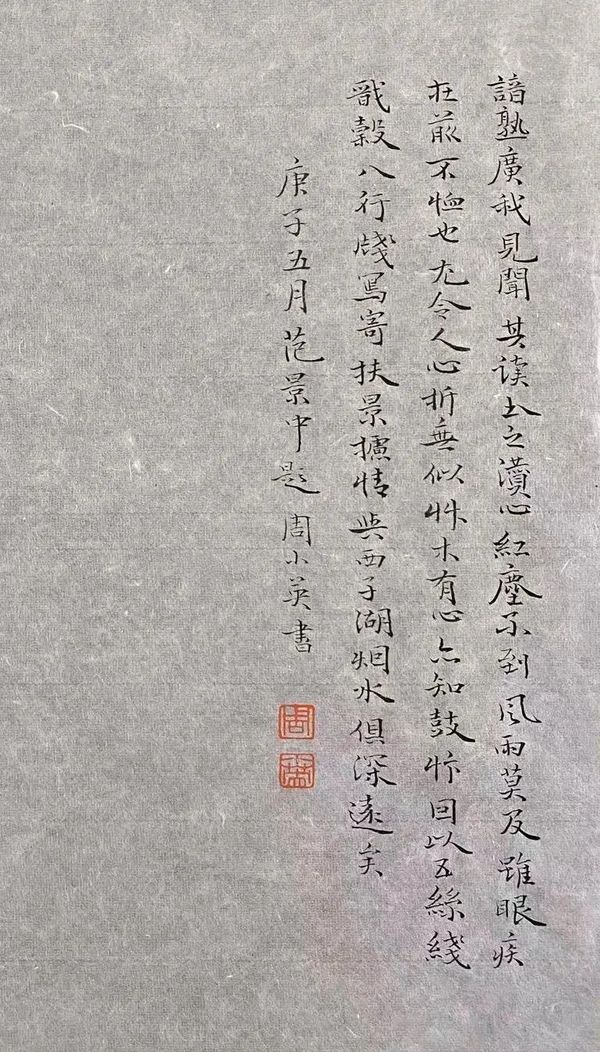 諳熟廣我見聞其读书之瀆心紅塵不到風雨莫及雖眼疾
在前不恤也尤令人心折無似艸木有心亦知鼓忭因以五絲綫
戬穀八行牋寫寄扶景攄情與西子湖烟水俱深遠矣
庚子五月范景中题周小英書